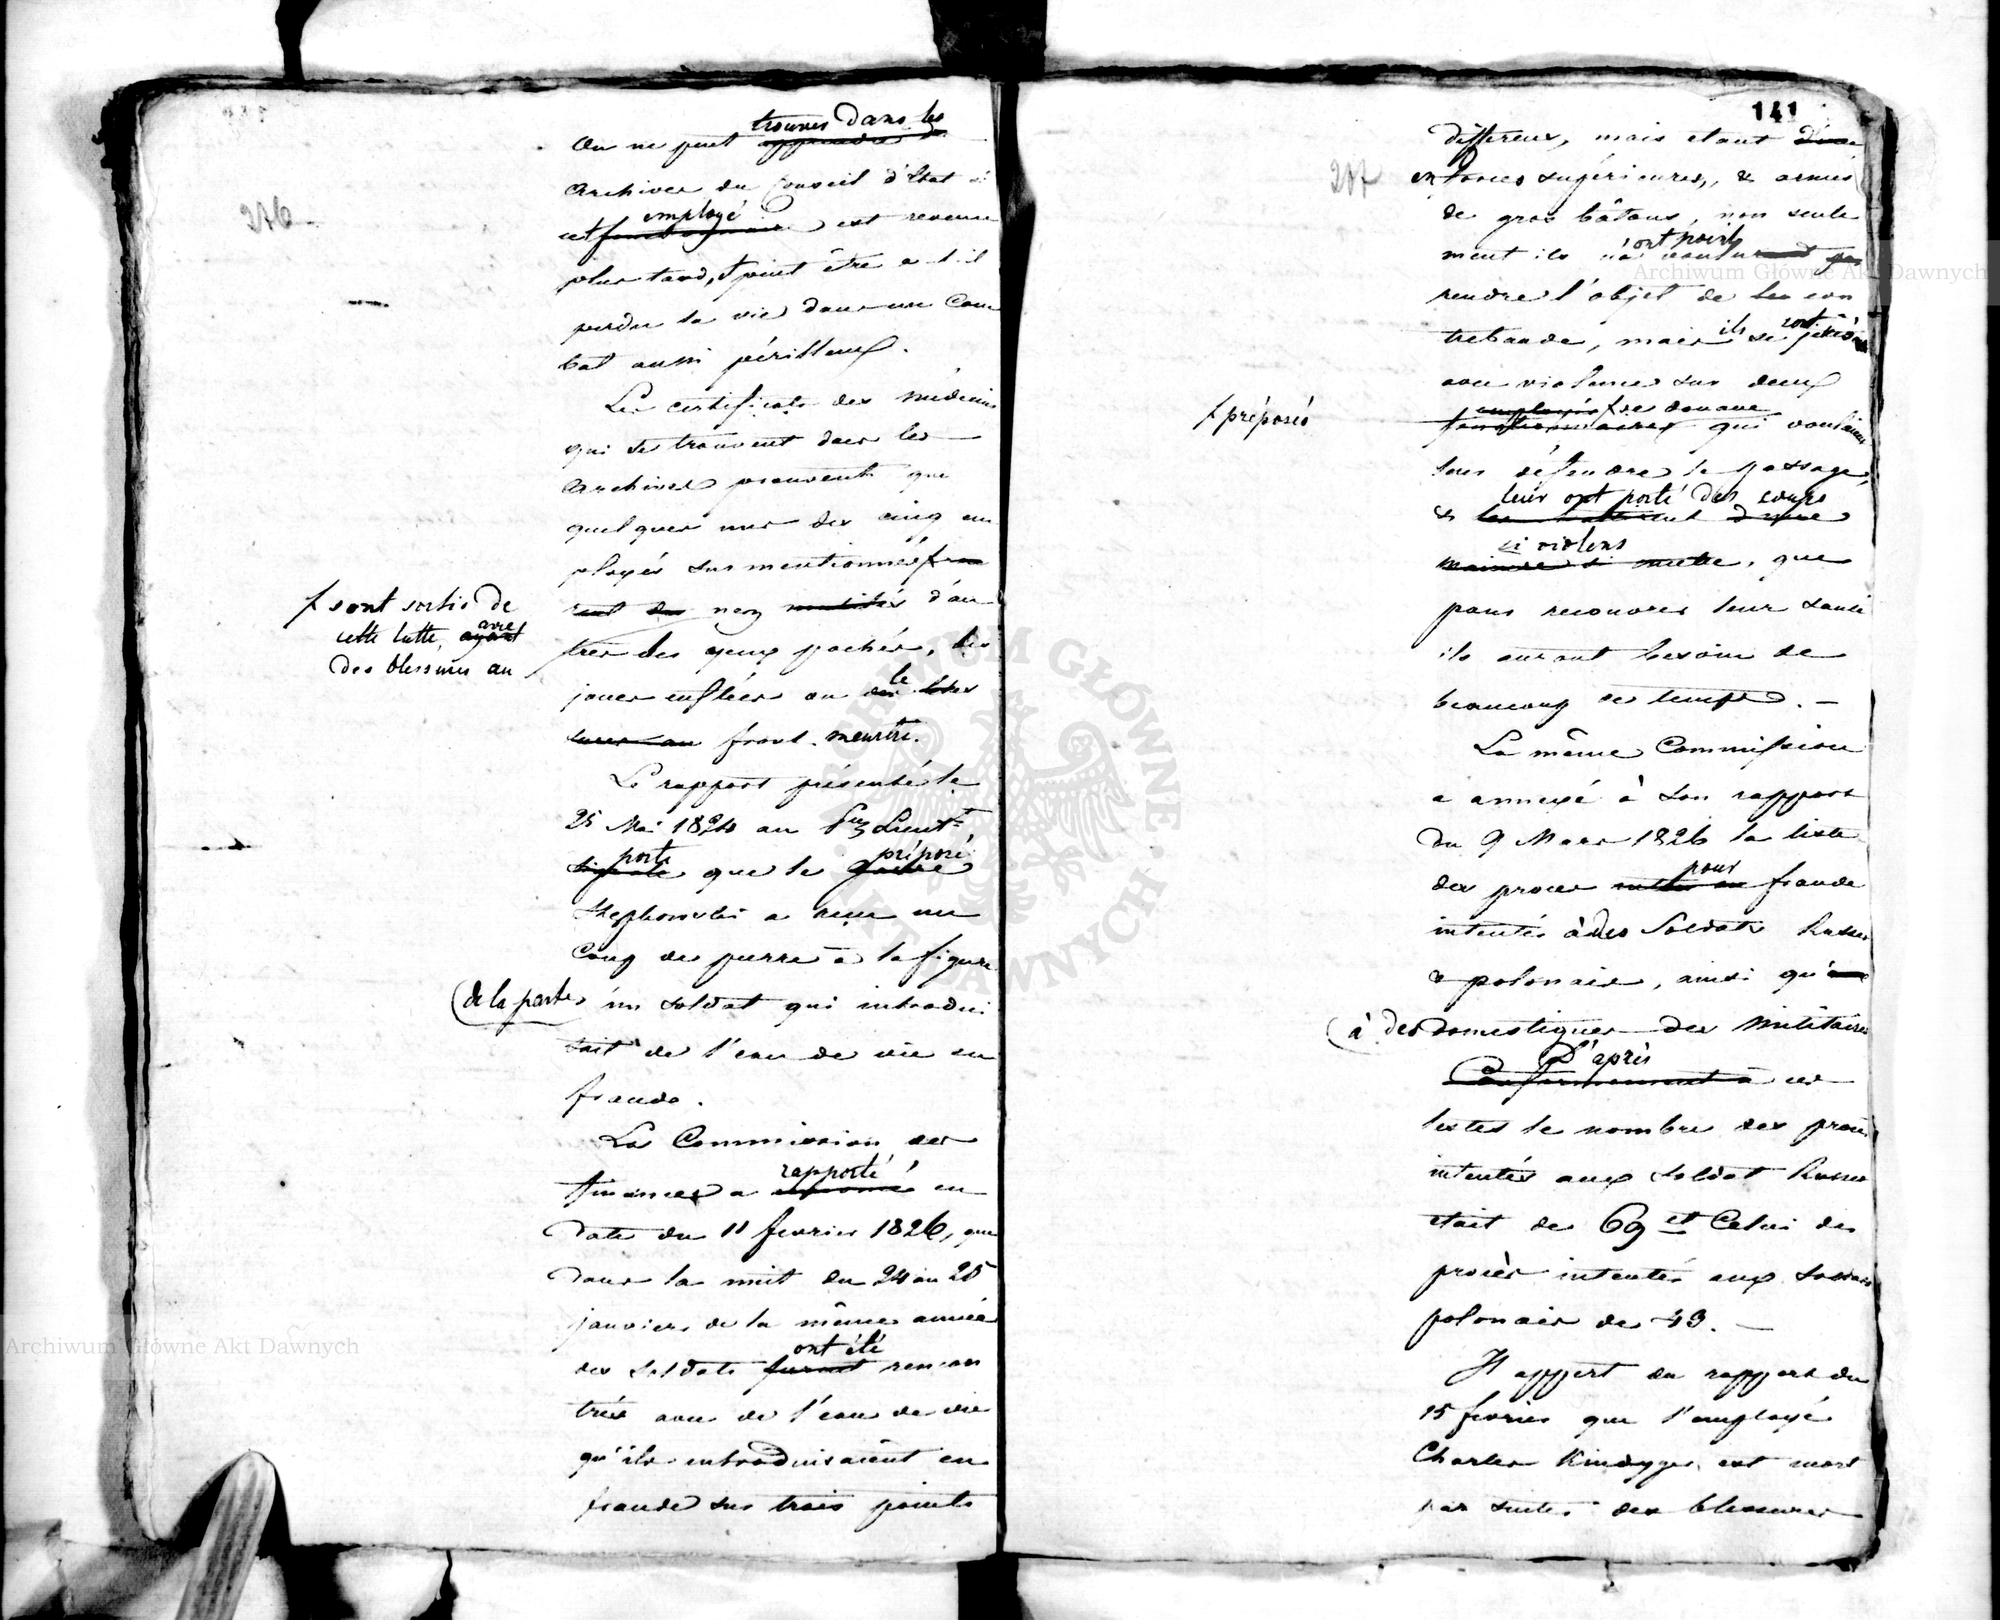 276
trouver dans les
On ne peut apprendre
Archives du Conseil d'Etat si
employé
cet fonctionnaire est revenu
plus tard, peut être a t-il
perdu la vie dans un Com
bat aussi périlleux.
Les certificats des médecins
qui se trouvent dans les
Archives prouvent que
quelques uns des cinq em
ployés sus mentionnés
f sont sortis de
cette lutte, ayant avec
des blessures au
nez d'au
tres des yeux pochés, des
joues enflées ou le
front meurtri.
Le rapport présenté le
25 Mai 1824 au Lieut.
porte que le préposé
Stephowski a reçu un
Coup de pierre à la figure
de la part d'un soldat qui introdui
sait de l'eau de vie en
fraude.
La Commission des
rapporté
finances a en
date du 11 fevrier 1826, que
dans la nuit du 24 au 25
janvier de la même année
ont été
des soldats furent rencon
trés avec de l'eau de vie
qu'ils introduisaient en
fraude sur trois points
141
277
differens, mais etant d'une
en forces supérieures, & armés
de gros bâtons, non seule
ont point
ment ils n' voulu pas
rendre l'objet de leu con
trebande, mais ils se sont jetés
avec violence sur deux
f préposés
employés f de douane
fonctionnaires qui voulaient
leur défendre le passage,
leur ont porté des coups
& les battirent d'une
si violens
manière si , que
pour recouvrer leur santé
ils auront besoin de
beaucoup de temps. –
La même Commission
a annexé à son rapport
du 9 Mars 1826 la liste
pour
des procès fraude
intentés à des Soldats Russes
& polonais, ainsi qu'
à des domestiques des Militaires
D'après
Conformement à ces
listes le nombre des procès
intentés aux Soldat Russes
etait de 69 et Celui des
procès intentés aux Soldats
polonais de 43. –
Il appert du rapport du
15 fevrier que l'employé
Charles est mort
par suites des blessures
Archiwum Główne Akt Dawnych
Archiwum Główne Akt Dawnych
ARCHIWUM GŁÓWNE AKT DAWNYCH